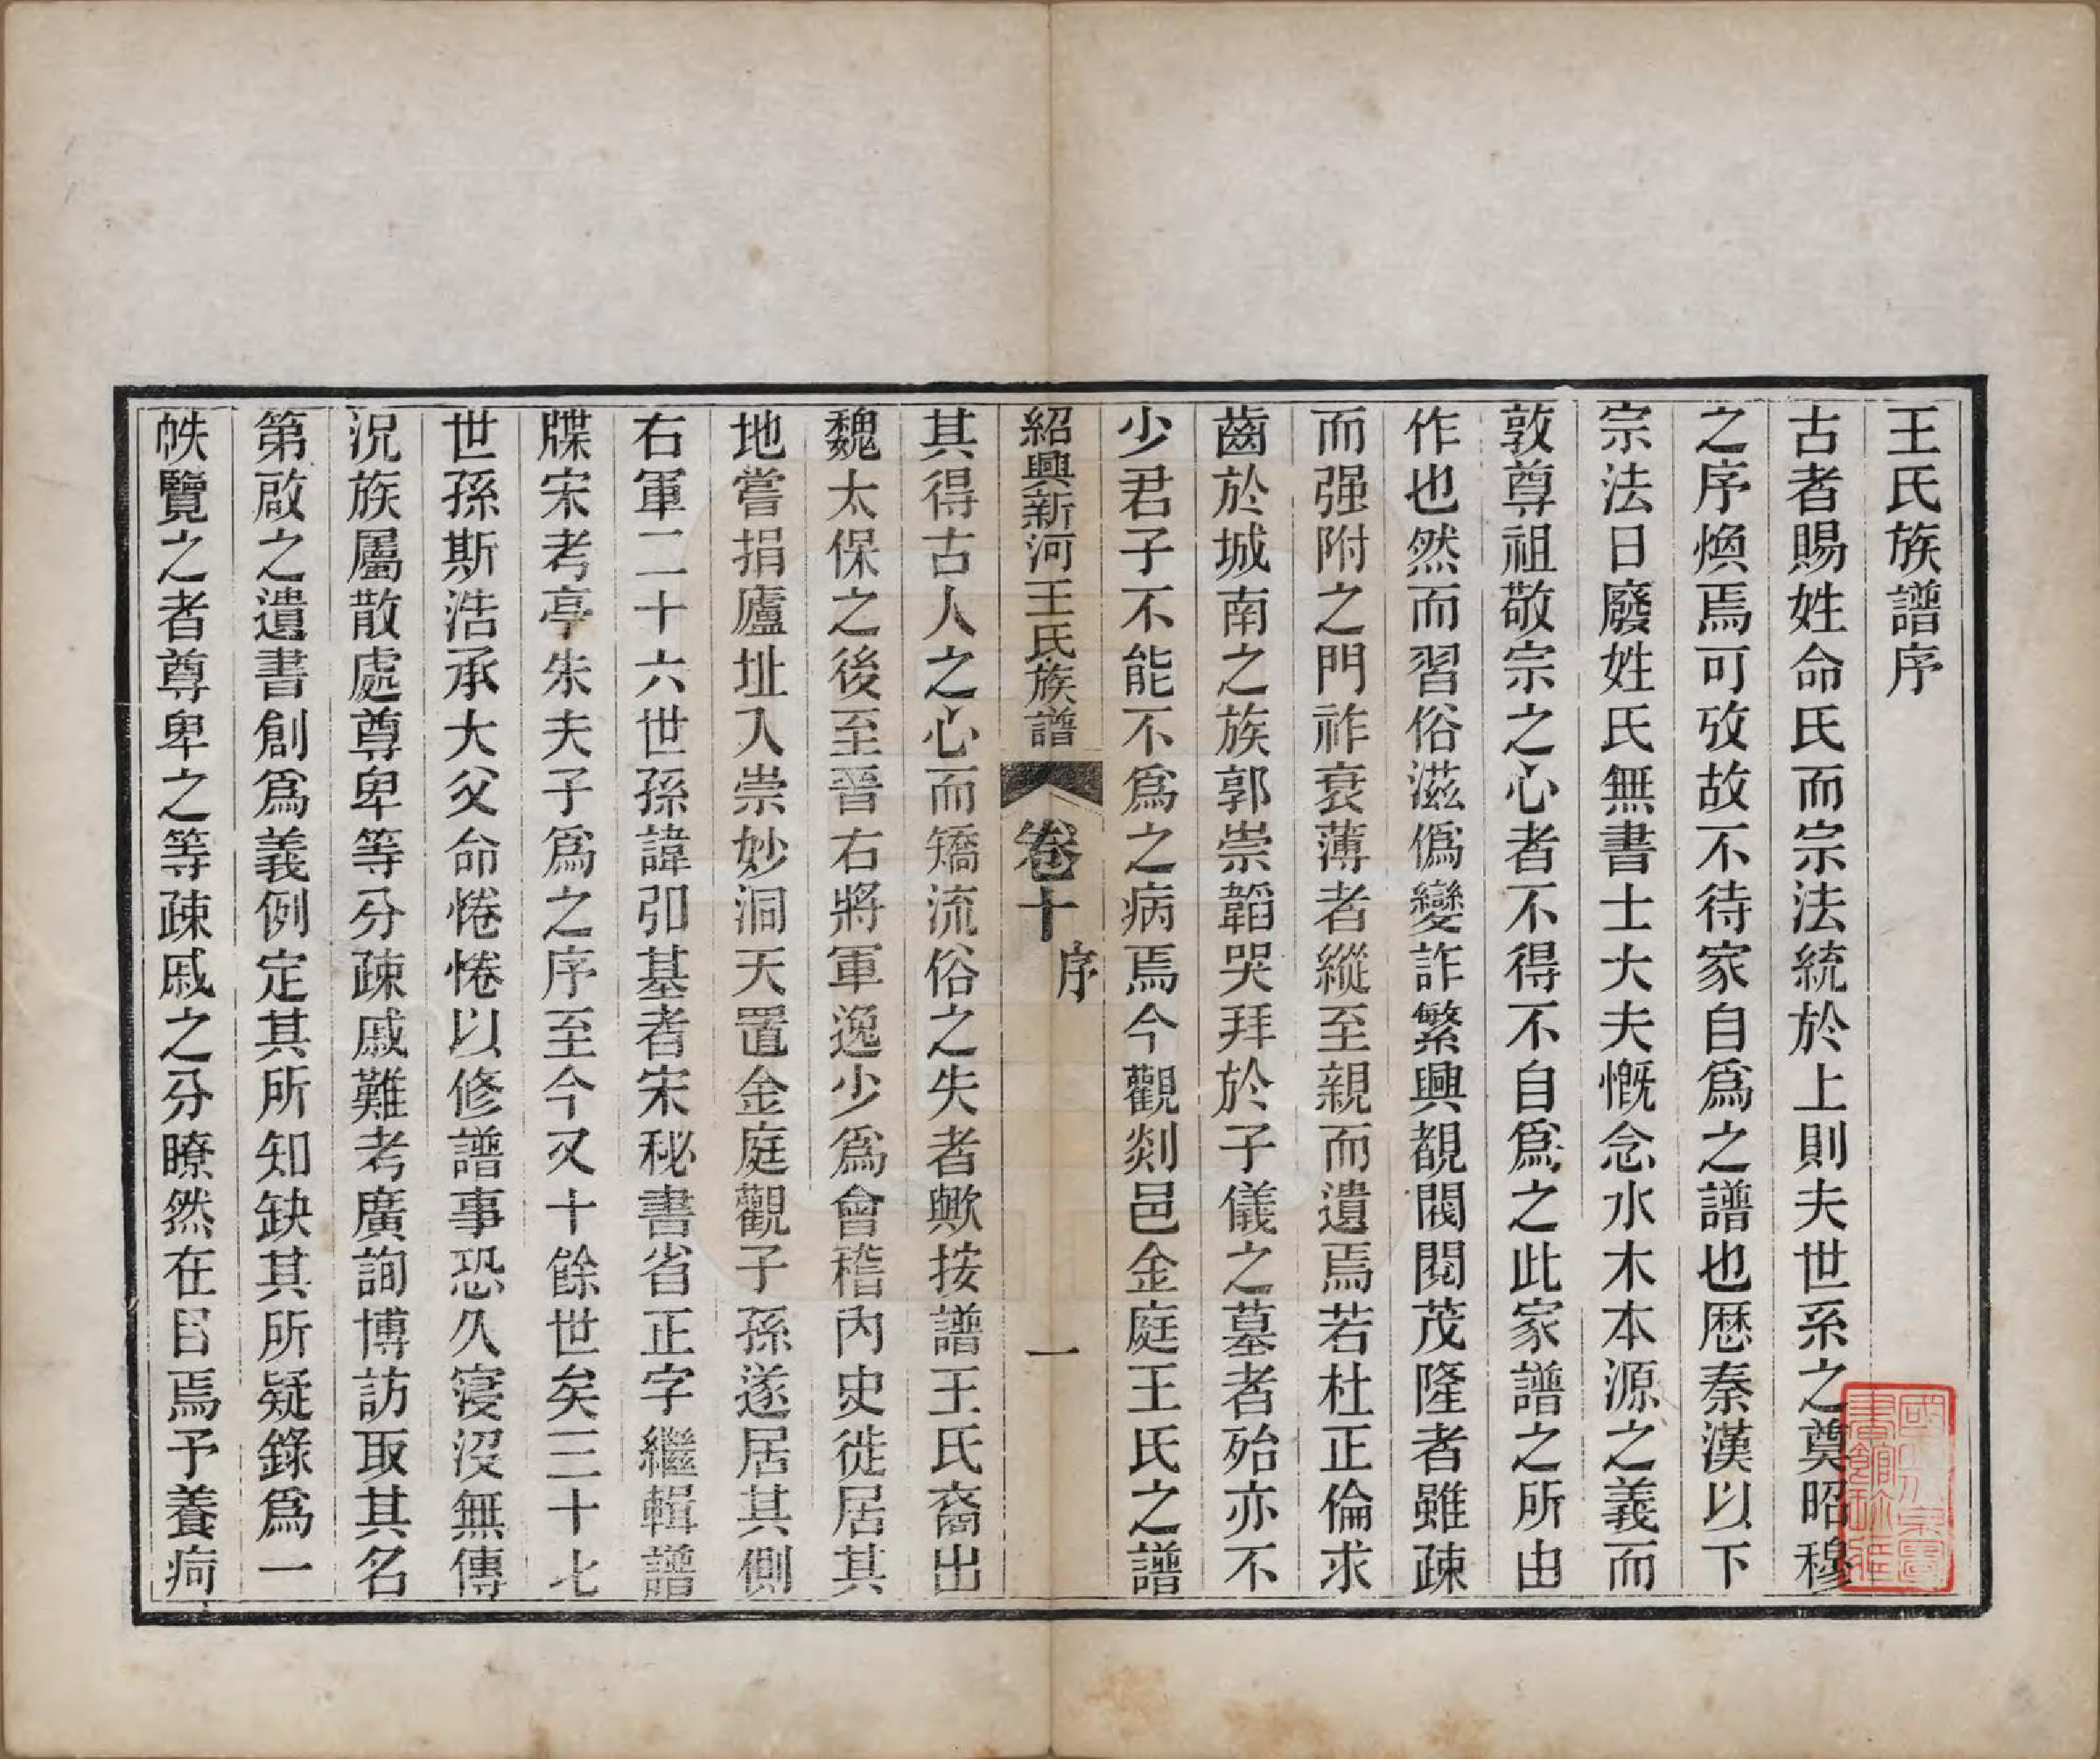 王氏族譜序
古者賜姓命氏而宗法統於上則夫世系之奠昭穆
之序煥焉可攷故不待家自爲之譜也歷秦漢以下
宗法日廢姓氏無書士大夫慨念水木本源之義而
敦尊祖敬宗之心者不得不自爲之此家譜之所由
作也然而習俗滋僞變詐繁興覩閥閱茂隆者雖疎
而强附之門祚衰薄者縱至親而遺焉若杜正倫求
齒於城南之族郭崇韜哭拜於子儀之墓者殆亦不
少君子不能不爲之病焉今觀剡邑金庭王氏之譜
紹興新河王氏族譜
卷十
序
一
其得古人之心而矯流俗之失者歟按譜王氏裔出
魏太保之後至晉右將軍逸少爲會稽內史徙居其
地嘗捐廬址入崇妙洞天置金庭觀子孫遂居其側
右軍二十六世孫諱弘基者宋秘書省正字繼輯譜
牒宋考亭朱夫子爲之序至今又十餘世矣三十七
世孫斯浩承大父命惓惓以修譜事恐久寖沒無傳
況族屬散處尊卑等分疎戚難考廣詢博訪取其名
第啟之遺書創爲義例定其所知缺其所疑錄爲一
帙覽之者尊卑之等疎戚之分瞭然在目焉予養疴